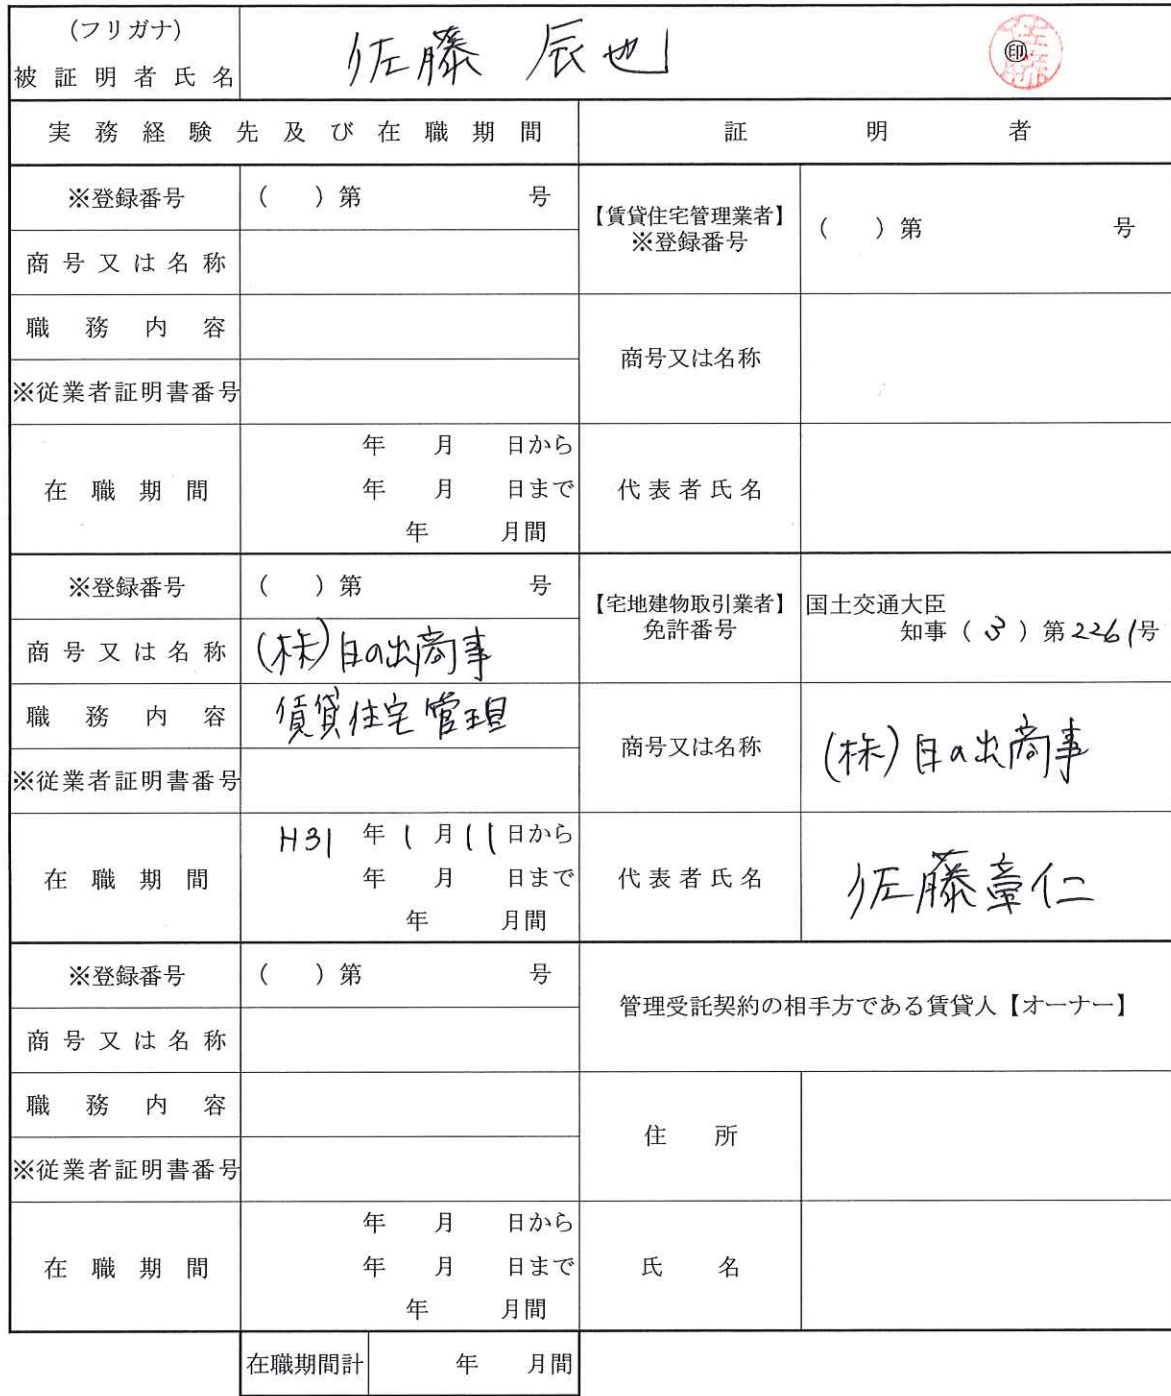 (フリガナ)
被証明者氏名 佐藤 辰也 ㊞ 佐藤
実務経験先及び在職期間 証明者
※登録番号 ( ) 第 号
【賃貸住宅管理業者】
※登録番号 ( ) 第 号
商号又は名称
職務内容
商号又は名称
※従業者証明書番号
在職期間
年 月 日から
年 月 日まで
年 月間
代表者氏名
※登録番号 ( ) 第 号
【宅地建物取引業者】
免許番号
国土交通大臣
知事 ( 3 ) 第2261号
商号又は名称 (株)日の出商事
職務内容 賃貸住宅管理
商号又は名称 (株)日の出商事
※従業者証明書番号
在職期間
H31 年 1 月 11 日から
年 月 日まで
年 月間
代表者氏名 佐藤章仁
※登録番号 ( ) 第 号
管理受託契約の相手方である賃貸人【オーナー】
商号又は名称
職務内容
住所
※従業者証明書番号
在職期間
年 月 日から
年 月 日まで
年 月間
氏名
在職期間計 年 月間